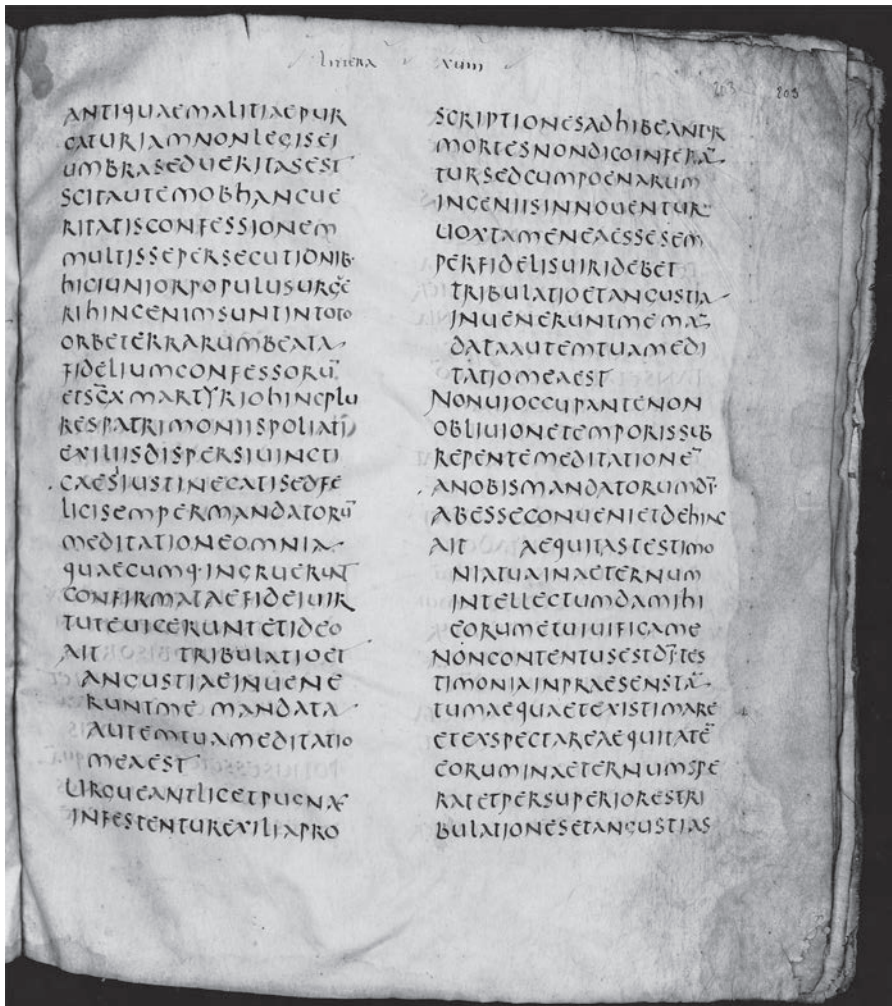 littera xuiii
203 203
ANTIQUAEMALITIAEPUR
GATURIAMNONLEGISEI
UMBRASEDUERITASEST
SCITAUTEMOBHANCUE
RITATISCONFESSIONEM
MULTISSEPERSECUTIONIB·
HICIUNIORPOPULUSURGE
RIHINCENIMSUNTINTOTO
ORBETERRARUMBEATA
FIDELIUMCONFESSORU̅
ETSC̅AMARTYRIAHINCPLU
RESPATRIMONIISPOLIATI
EXILIISDISPERSIUINCTI
CAESIUSTINECATISEDFE
LICISEMPERMANDATORU̅
MEDITATIONEOMNIA
QUAECUMQ·INGRUERUNT
CONFIRMATAEFIDEIUIR
TUTEUICERUNTETIDEO
AIT TRIBULATIOET
ANGUSTIAEINUENE
RUNTME MANDATA
AUTEMTUAMEDITATIO
MEAEST
URGUEANTLICETPUGNAE
INFESTENTUREXILIAPRO
SCRIPTIONESADHIBEANTUR
MORTESNONDICOINFERA̅
TURSEDCUMPOENARUM
INGENIISINNOUENTUR
UOXTAMENEAESSESEM
PERFIDELISUIRIDEBET
TRIBULATIOETANGUSTIA
INUENERUNTMEMA̅
DATAAUTEMTUAMEDI
TATIOMEAEST
NONUIOCCUPANTENON
OBLIUIONETEMPORISSUB
REPENTEMEDITATIONE̅
ANOBISMANDATORUMDI̅
ABESSECONUENIETDEHINC
AIT AEQUITASTESTIMO
NIATUAINAETERNUM
INTELLECTUMDAMIHI
EORUMETUIUIFICAME
NONCONTENTUSESTDI̅TES
TIMONIAINPRAESENSTA̅
TUMAEQUAETEXISTIMARE
ETEXSPECTAREAEQUITATE̅
EORUMINAETERNUMSPE
RATETPERSUPERIORESTRI
BULATIONESETANGUSTIAS